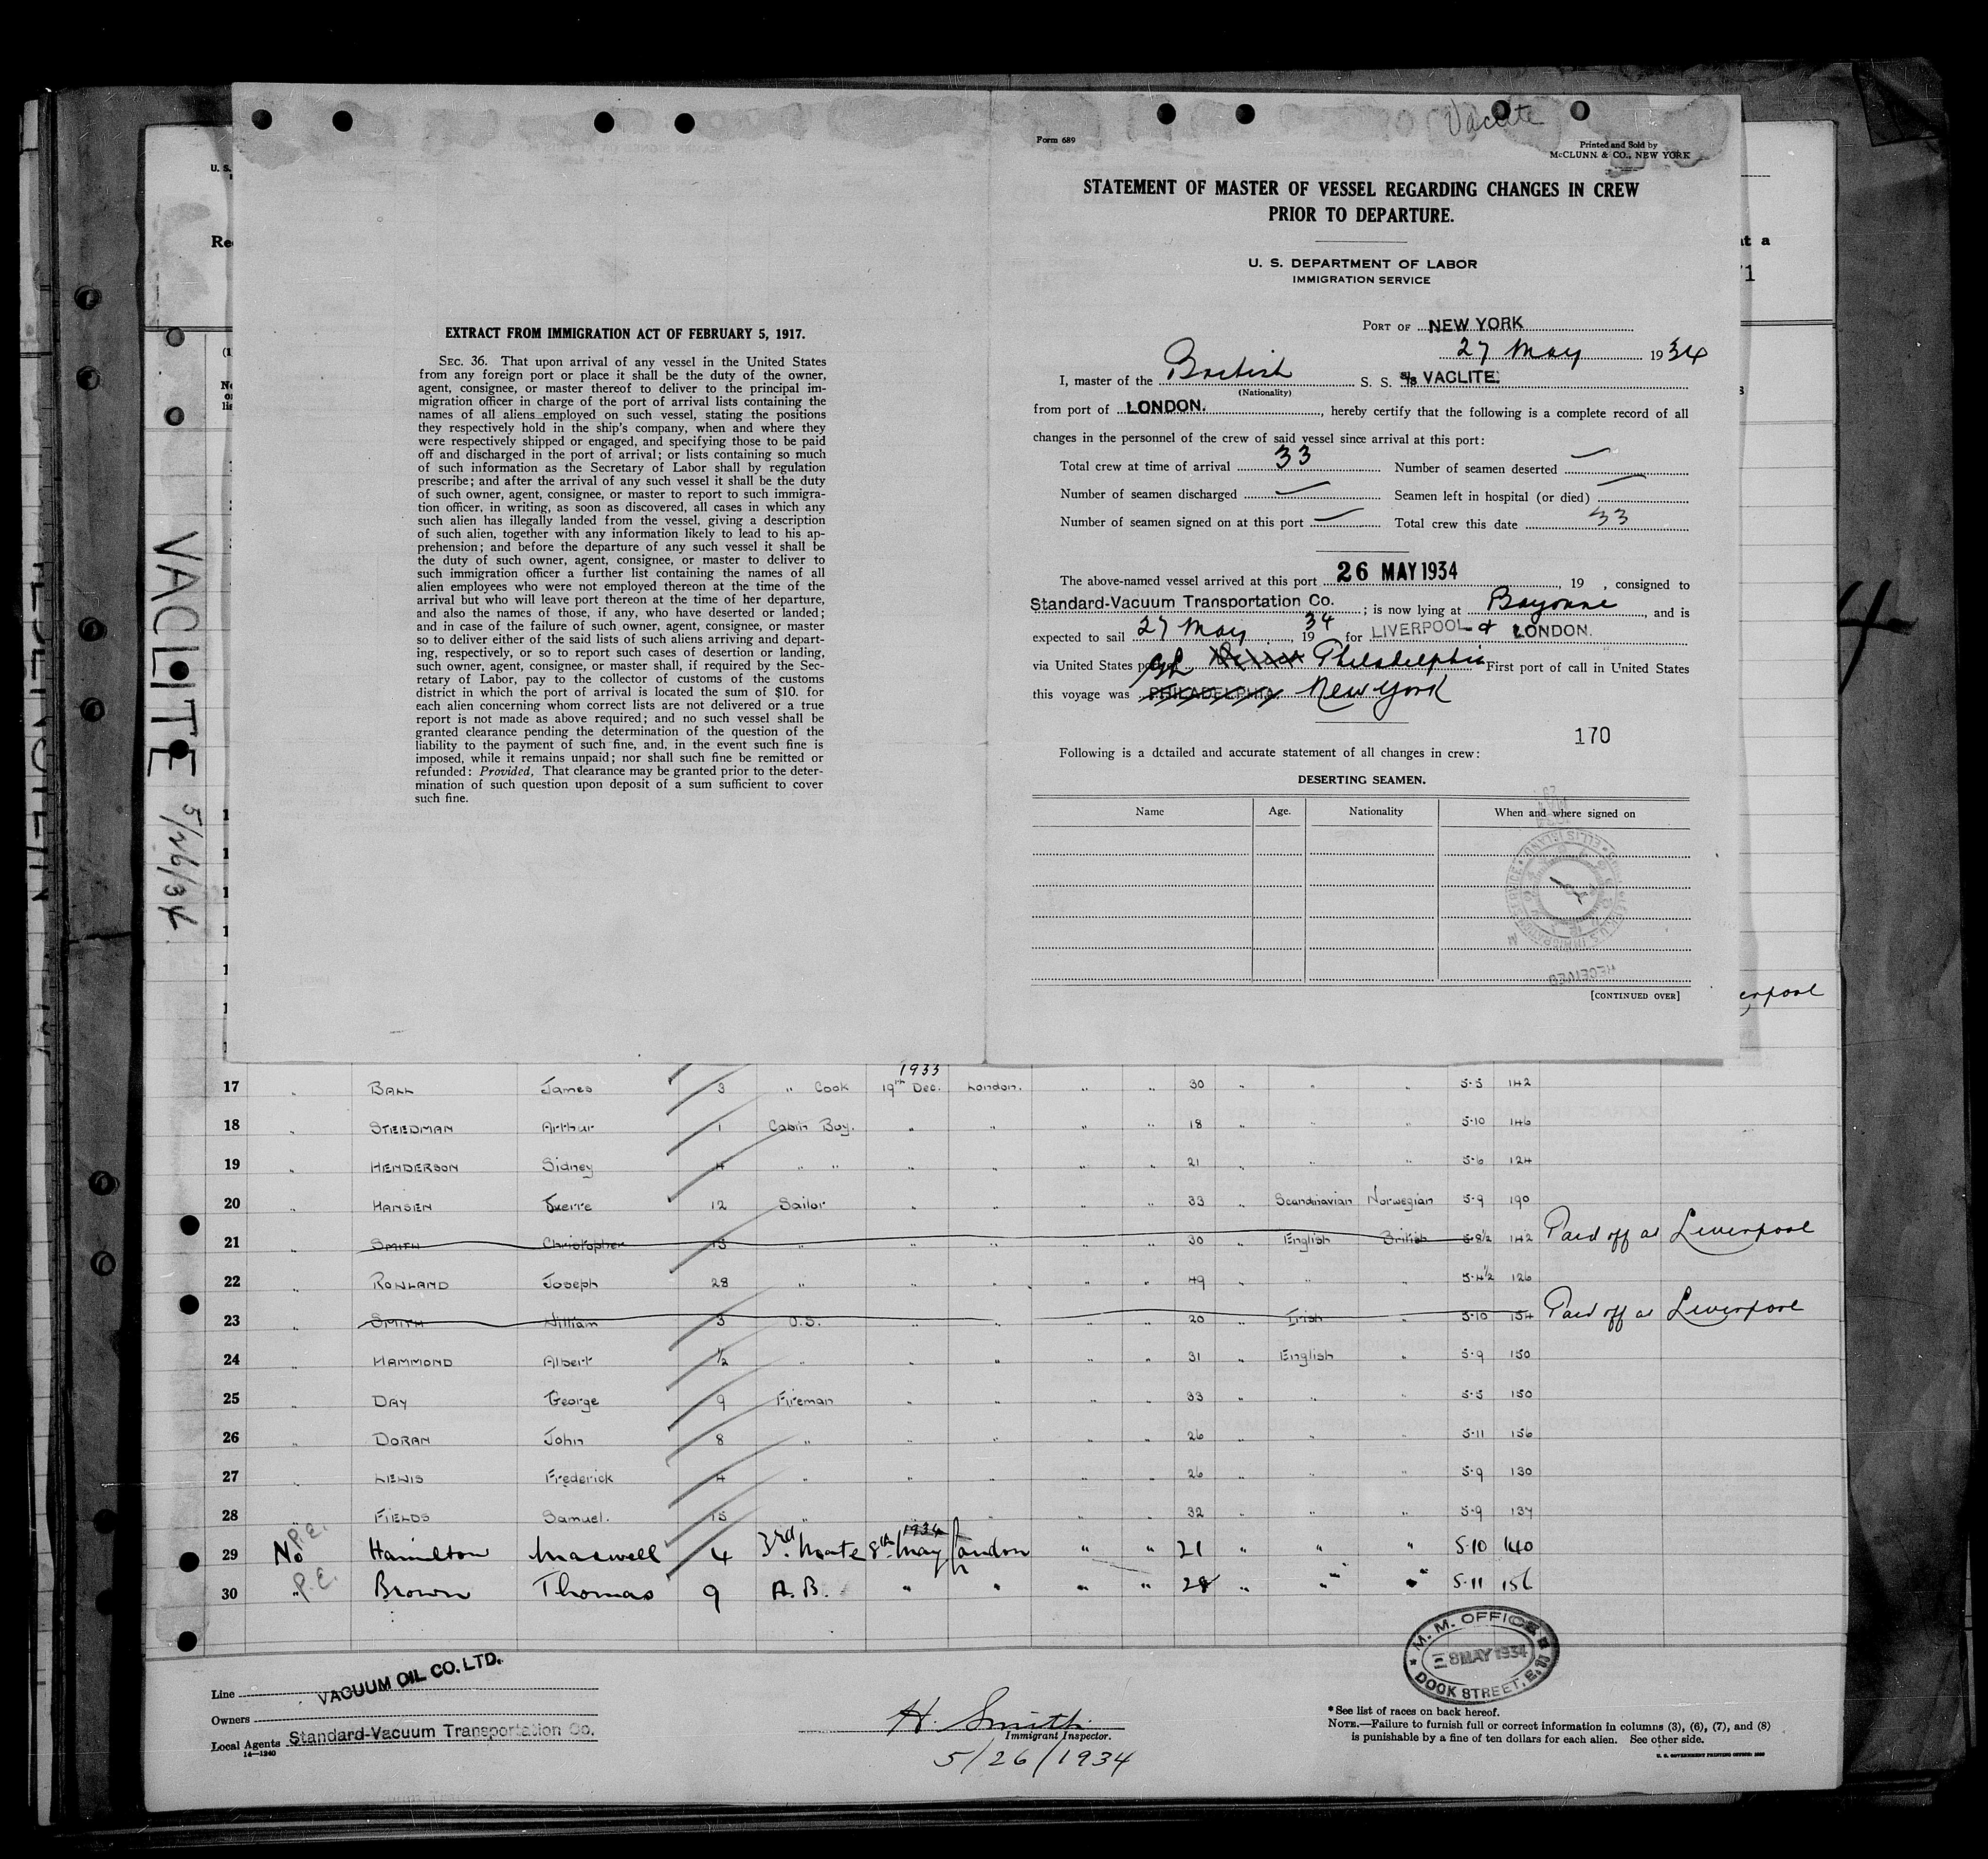 Vaclite
Form 689
Printed and Sold by
McCLUNN & CO., NEW YORK
STATEMENT OF MASTER OF VESSEL REGARDING CHANGES IN CREW
PRIOR TO DEPARTURE.
U. S. DEPARTMENT OF LABOR
IMMIGRATION SERVICE
PORT OF NEW YORK
27 May 1934
I, master of the British S. S. S/S VACLITE.
(Nationality)
from port of LONDON., hereby certify that the following is a complete record of all
changes in the personnel of the crew of said vessel since arrival at this port:
Total crew at time of arrival 33 Number of seamen deserted —
Number of seamen discharged — Seamen left in hospital (or died) —
Number of seamen signed on at this port — Total crew this date 33
The above-named vessel arrived at this port 26 MAY 1934, 19 , consigned to
Standard-Vacuum Transportation Co.; is now lying at Bayonne, and is
expected to sail 27 May, 1934 for LIVERPOOL & LONDON.
via United States Philadelphia First port of call in United States
this voyage was PHILADELPHIA New York
170
Following is a detailed and accurate statement of all changes in crew:
DESERTING SEAMEN.
Name Age. Nationality When and where signed on
RECEIVED
[CONTINUED OVER]
EXTRACT FROM IMMIGRATION ACT OF FEBRUARY 5, 1917.
SEC. 36. That upon arrival of any vessel in the United States
from any foreign port or place it shall be the duty of the owner,
agent, consignee, or master thereof to deliver to the principal im-
migration officer in charge of the port of arrival lists containing the
names of all aliens employed on such vessel, stating the positions
they respectively hold in the ship's company, when and where they
were respectively shipped or engaged, and specifying those to be paid
off and discharged in the port of arrival; or lists containing so much
of such information as the Secretary of Labor shall by regulation
prescribe; and after the arrival of any such vessel it shall be the duty
of such owner, agent, consignee, or master to report to such immigra-
tion officer, in writing, as soon as discovered, all cases in which any
such alien has illegally landed from the vessel, giving a description
of such alien, together with any information likely to lead to his ap-
prehension; and before the departure of any such vessel it shall be
the duty of such owner, agent, consignee, or master to deliver to
such immigration officer a further list containing the names of all
alien employees who were not employed thereon at the time of the
arrival but who will leave port thereon at the time of her departure,
and also the names of those, if any, who have deserted or landed;
and in case of the failure of such owner, agent, consignee, or master
so to deliver either of the said lists of such aliens arriving and depart-
ing, respectively, or so to report such cases of desertion or landing,
such owner, agent, consignee, or master shall, if required by the Sec-
retary of Labor, pay to the collector of customs of the customs
district in which the port of arrival is located the sum of $10. for
each alien concerning whom correct lists are not delivered or a true
report is not made as above required; and no such vessel shall be
granted clearance pending the determination of the question of the
liability to the payment of such fine, and, in the event such fine is
imposed, while it remains unpaid; nor shall such fine be remitted or
refunded: Provided, That clearance may be granted prior to the deter-
mination of such question upon deposit of a sum sufficient to cover
such fine.
VACLITE 5/26/34
17 " BALL James 3 " Cook 1933 19th Dec. London. " " 30 " " " 5-5 142
18 " STEEDMAN Arthur 1 Cabin Boy. " " " " 18 " " " 5-10 146
19 " HENDERSON Sidney 4 " " " " " " 21 " " " 5-6 124
20 " HANSEN Sverre 12 Sailor " " " " 33 " Scandinavian Norwegian 5-9 190
21 " SMITH Christopher 13 " " " " " 30 " English British 5-8½ 142 Paid off at Liverpool
22 " ROWLAND Joseph 28 " " " " " 49 " " " 5-4½ 126
23 " SMITH William 3 O.S. " " " " 20 " Irish " 5-10 154 Paid off at Liverpool
24 " HAMMOND Albert ½ " " " " " 31 " English " 5-9 150
25 " DAY George 9 Fireman " " " " 33 " " " 5-5 150
26 " DORAN John 8 " " " " " 26 " " " 5-11 156
27 " LEWIS Frederick 4 " " " " " 26 " " " 5-9 130
28 " FIELDS Samuel. 15 " " " " " 32 " " " 5-9 137
29 No P.E. Hamilton Maxwell 4 3rd. Mate 1934 8th May London " " 21 " " " 5-10 140
30 " P.E. Brown Thomas 9 A.B. " " " " 28 " " " 5-11 156
Line VACUUM OIL CO. LTD.
Owners
Local Agents Standard-Vacuum Transportation Co.
14—1240
H. Smith
Immigrant Inspector.
5/26/1934
M. M. OFFICE
8 MAY 1934
DOCK STREET, E.
* See list of races on back hereof.
NOTE.—Failure to furnish full or correct information in columns (3), (6), (7), and (8)
is punishable by a fine of ten dollars for each alien. See other side.